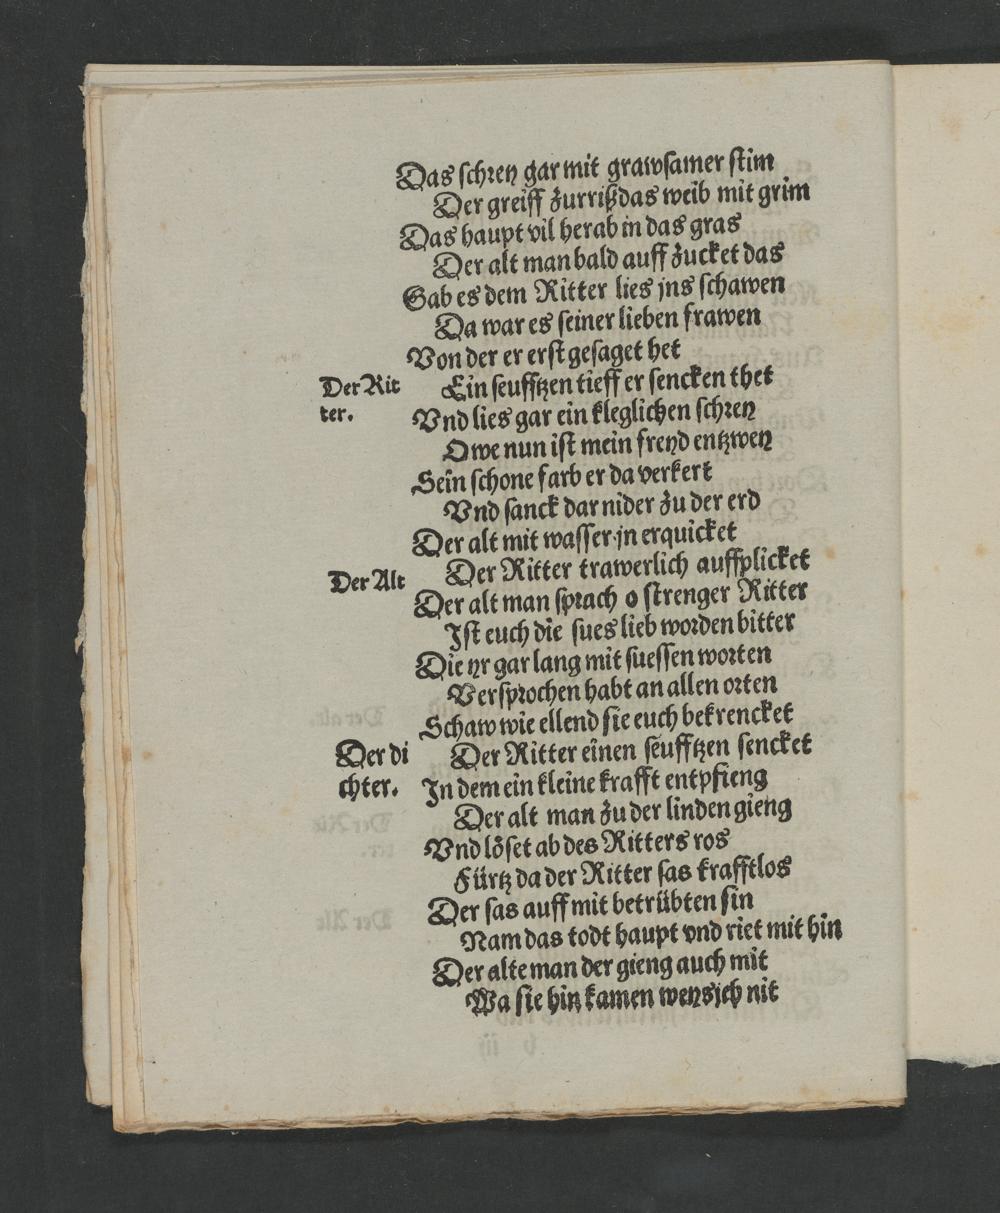 Das schrey gar mit grawsamer stim
Der greiff zurriß das weib mit grim
Das haupt vil herab in das gras
Der alt man bald auff zucket das
Gab es dem Ritter lies jns schawen
Da war es seiner lieben frawen
Von der er erst gesaget het
Der Rit
ter.
Ein seufftzen tieff er sencken thet
Vnd lies gar ein kleglichen schrey
O we nun ist mein freyd entzwey
Sein schone farb er da verkert
Vnd sanck dar nider zu der erd
Der alt mit wasser jn erquicket
Der Ritter trawerlich auffplicket
Der Alt
Der alt man sprach o strenger Ritter
Ist euch die sues lieb worden bitter
Die yr gar lang mit suessen worten
Versprochen habt an allen orten
Schaw wie ellend sie euch bekrencket
Der di
chter.
Der Ritter einen seufftzen sencket
In dem ein kleine krafft entpfieng
Der alt man zu der linden gieng
Vnd löset ab des Ritters ros
Fürtz da der Ritter sas krafftlos
Der sas auff mit betrübten sin
Nam das todt haupt vnd riet mit hin
Der alte man der gieng auch mit
Wa sie hin kamen weys ich nit